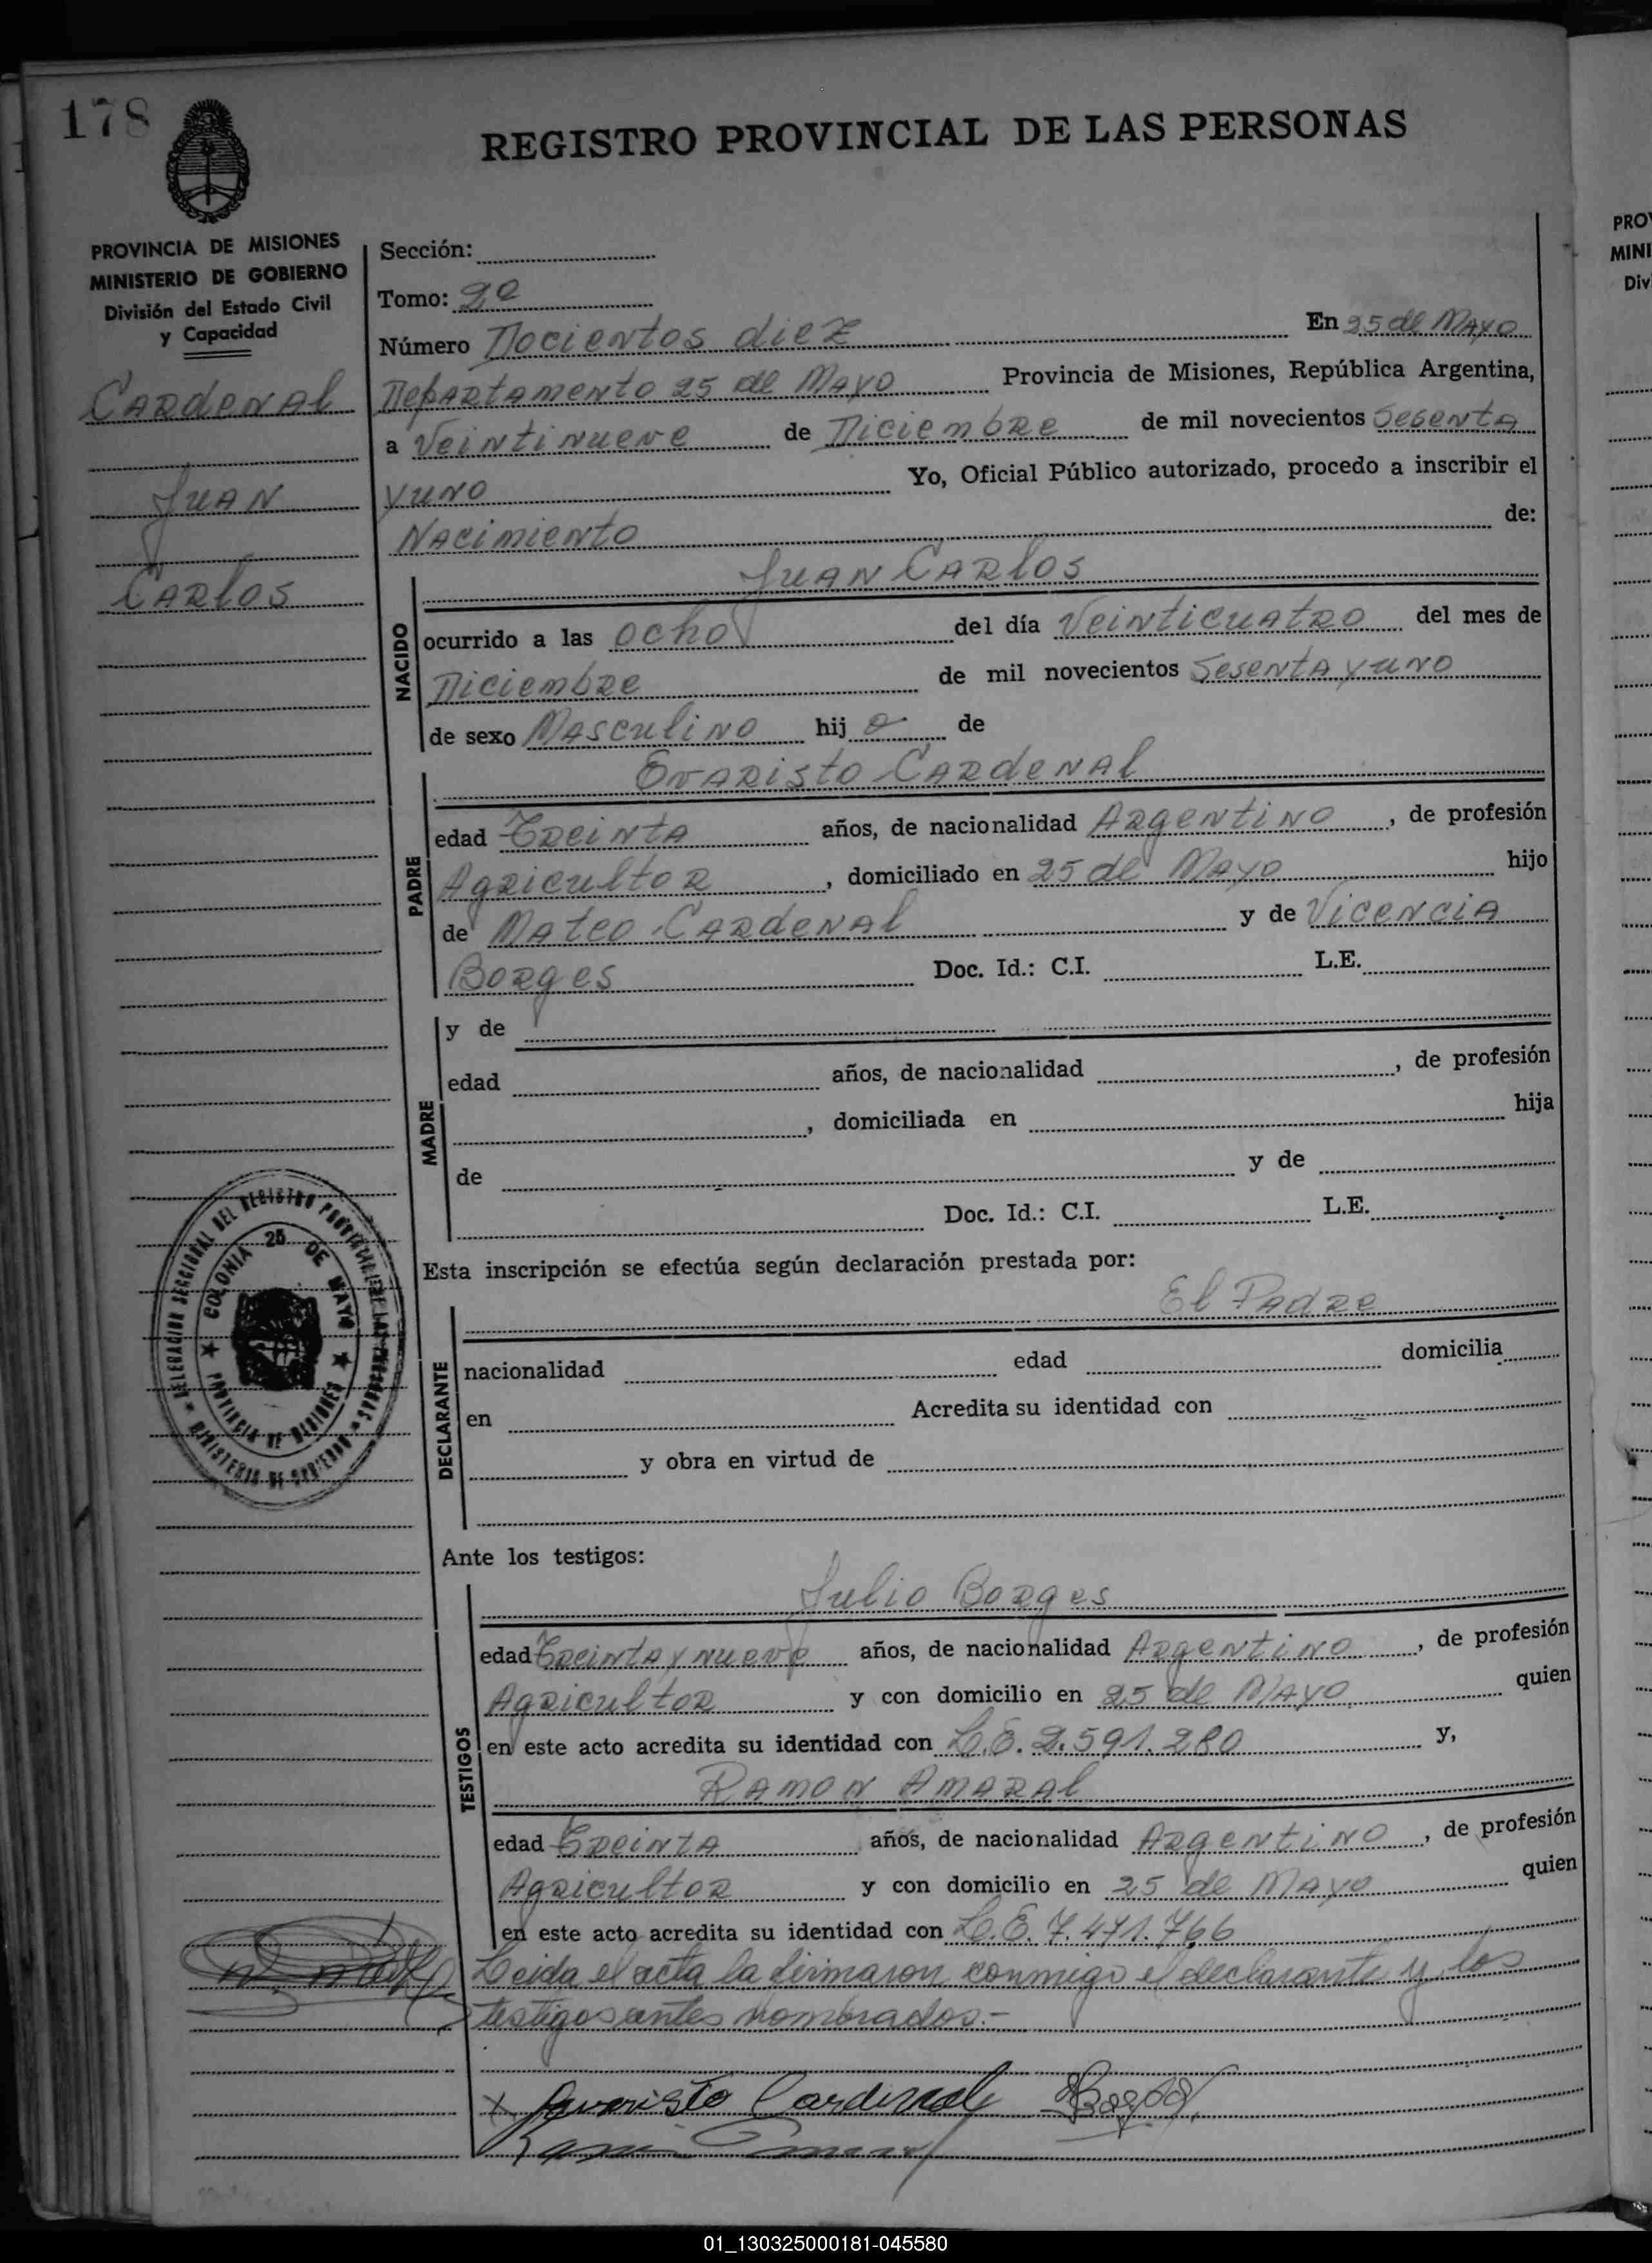 178
REGISTRO PROVINCIAL DE LAS PERSONAS
PROVINCIA DE MISIONES
MINISTERIO DE GOBIERNO
División del Estado Civil
y Capacidad
Cardenal
Juan
Carlos
Sección:
Tomo: 2º
Número Docientos diez En 25 de Mayo
Departamento 25 de Mayo Provincia de Misiones, República Argentina,
a Veintinueve de Diciembre de mil novecientos Sesenta
y uno Yo, Oficial Público autorizado, procedo a inscribir el
Nacimiento de:
Juan Carlos
NACIDO
ocurrido a las ocho del día Veinticuatro del mes de
Diciembre de mil novecientos Sesenta y uno
de sexo Masculino hij o de
Evaristo Cardenal
PADRE
edad Treinta años, de nacionalidad Argentino, de profesión
Agricultor, domiciliado en 25 de Mayo hijo
de Mateo Cardenal y de Vicencia
Borges Doc. Id.: C.I. L.E.
MADRE
y de
edad años, de nacionalidad , de profesión
, domiciliada en hija
de y de
Doc. Id.: C.I. L.E.
Esta inscripción se efectúa según declaración prestada por:
El Padre
DECLARANTE
nacionalidad edad domicilia
en Acredita su identidad con
y obra en virtud de
DELEGACION SECCIONAL DEL REGISTRO PROVINCIAL DE LAS PERSONAS
MINISTERIO DE GOBIERNO
COLONIA 25 DE MAYO
PROVINCIA DE MISIONES
Ante los testigos:
Julio Borges
TESTIGOS
edad Treinta y nueve años, de nacionalidad Argentino, de profesión
Agricultor y con domicilio en 25 de Mayo quien
en este acto acredita su identidad con L.E. 2.591.280 y,
Ramon Amaral
edad Treinta años, de nacionalidad Argentino, de profesión
Agricultor y con domicilio en 25 de Mayo quien
en este acto acredita su identidad con L.E. 7.471.766
Leida el acta la firmaron conmigo el declarante y los
testigos antes nombrados.-
x Cardenal Borges
PROV
MINI
Div
01_130325000181-045580